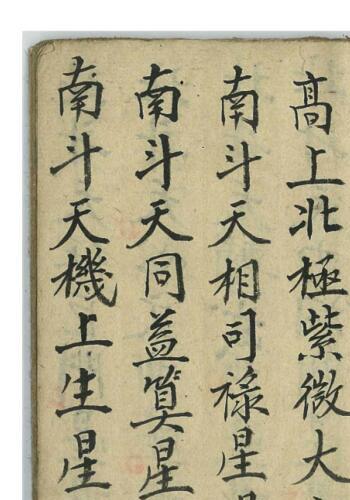 高上北極紫微大
南斗天相司祿星
南斗天同益算星
南斗天機上生星